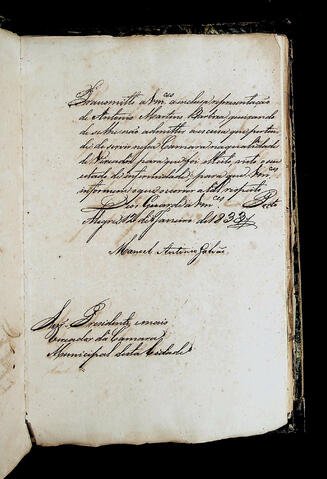 Transmitto a Vm.ces a inclusa representação
de Antonio Martins Barboza queixando
de se lhe não admittir a escusa que perten
de de servir nessa Camara na qualidade
de Vereador para que foi eleito, visto o seu
estado de infermidade para que Vm.ces
informem o que occorrer a tal respeito.
Deos Guarde a Vm.ces Porto
Alegre 12 de Janeiro de 1833
Manoel Antonio Galvão
Snr.es Presidente, e mais
Vereador da Camara
Municipal desta Cidade